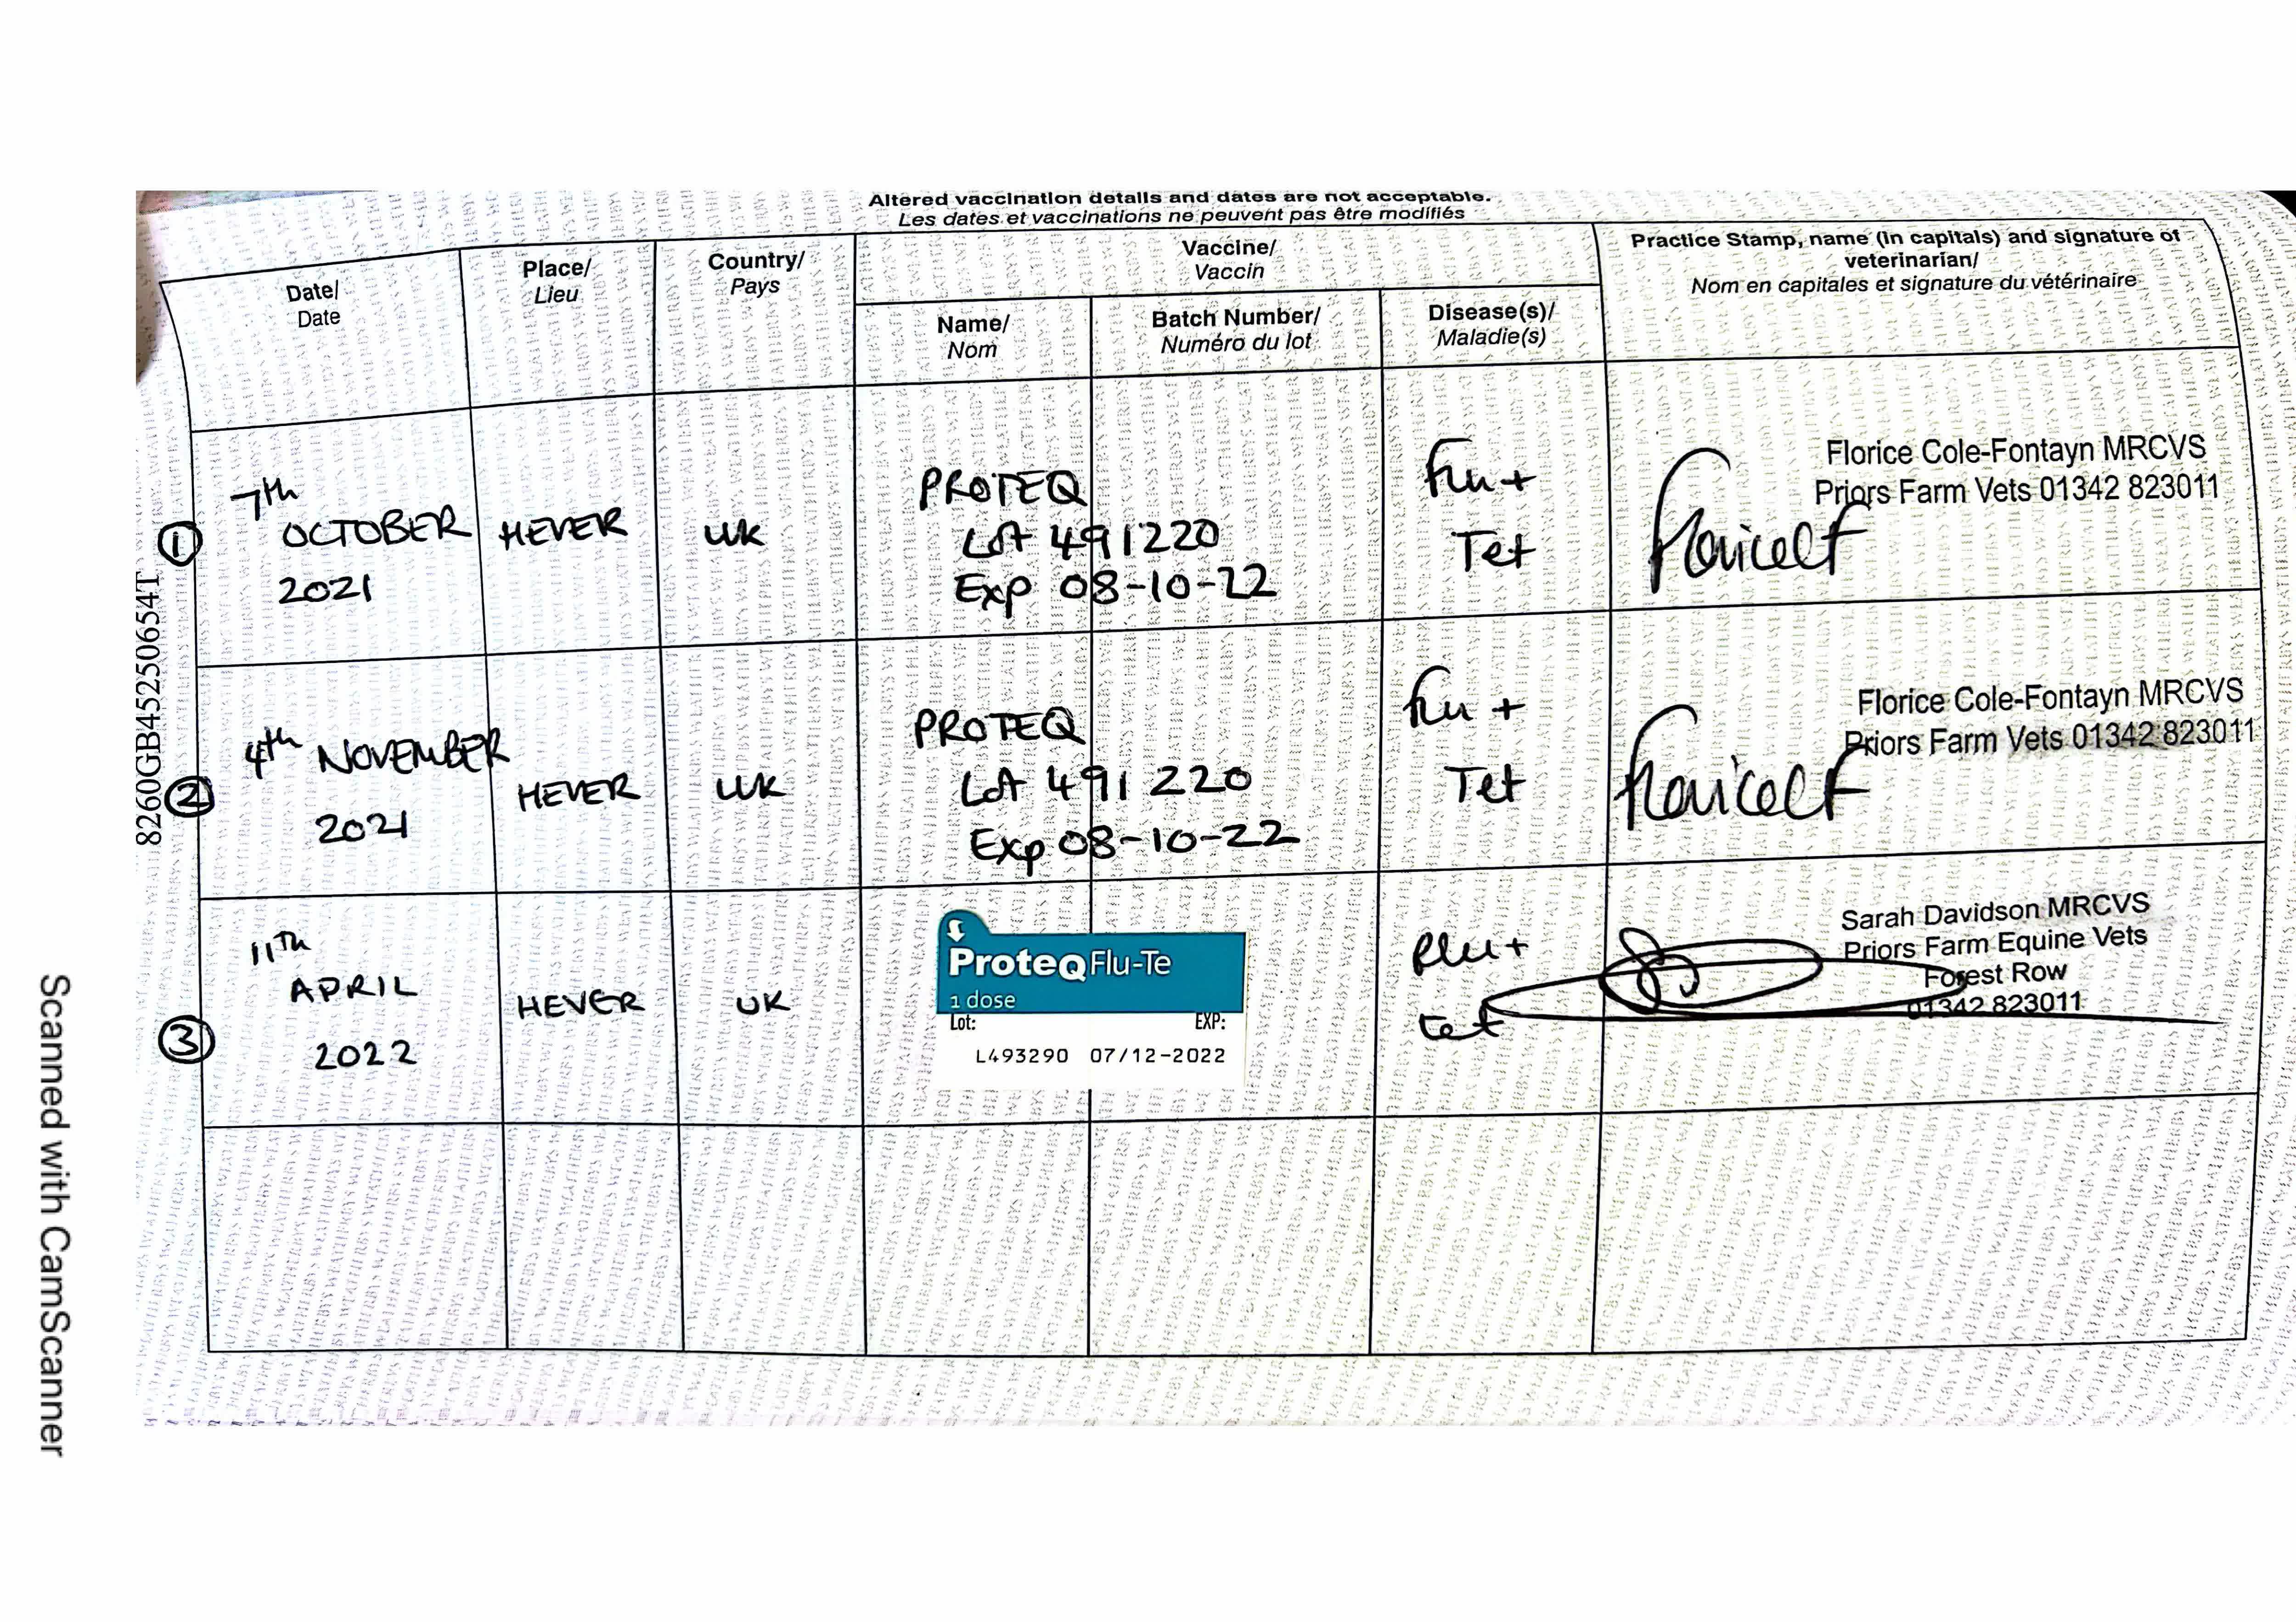 Altered vaccination details and dates are not acceptable.
Les dates et vaccinations ne peuvent pas être modifiés
Date/
Date
Place/
Lieu
Country/
Pays
Vaccine/
Vaccin
Name/
Nom
Batch Number/
Numéro du lot
Disease(s)/
Maladie(s)
Practice Stamp, name (in capitals) and signature of
veterinarian/
Nom en capitales et signature du vétérinaire
8260GB45250654T
1
7th
OCTOBER
2021
HEVER
UK
PROTEQ
Lot 491220
Exp 08-10-22
Flu +
Tet
Florice Cole-Fontayn MRCVS
Priors Farm Vets 01342 823011
2
4th NOVEMBER
2021
HEVER
UK
PROTEQ
Lot 491 220
Exp 08-10-22
Flu +
Tet
Florice Cole-Fontayn MRCVS
Priors Farm Vets 01342 823011
3
11Th
APRIL
2022
HEVER
UK
ProteqFlu-Te
1 dose
Lot: EXP:
L493290 07/12-2022
Flu+
tet
Sarah Davidson MRCVS
Priors Farm Equine Vets
Forest Row
01342 823011
Scanned with CamScanner